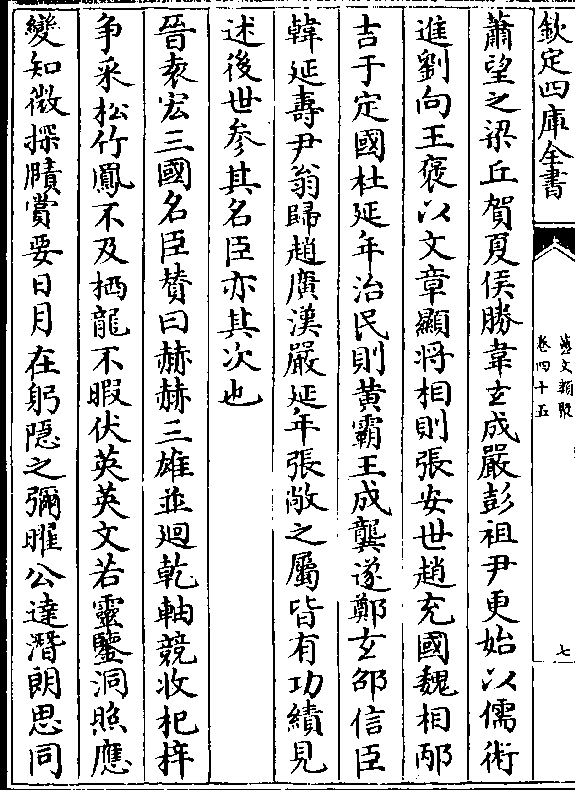 欽定四庫全書
藝文類聚
卷四十五
七
蕭望之梁丘賀夏侯勝韋玄成嚴彭祖尹更始以儒術
進劉向王褒以文章顯將相則張安世趙充國魏相邴
吉于定國杜延年治民則黄霸王成龔遂鄭玄邵信臣
韓延壽尹翁歸趙廣漢嚴延年張敞之屬皆有功績見
述後世參其名臣亦其次也
晉袁宏三國名臣贊曰赫赫三雄並廻乾軸競收杞梓
争采松竹鳳不及栖龍不暇伏英英文若靈鑒洞照應
變知微探賾賞要日月在躬隱之彌曜公達潛朗思同